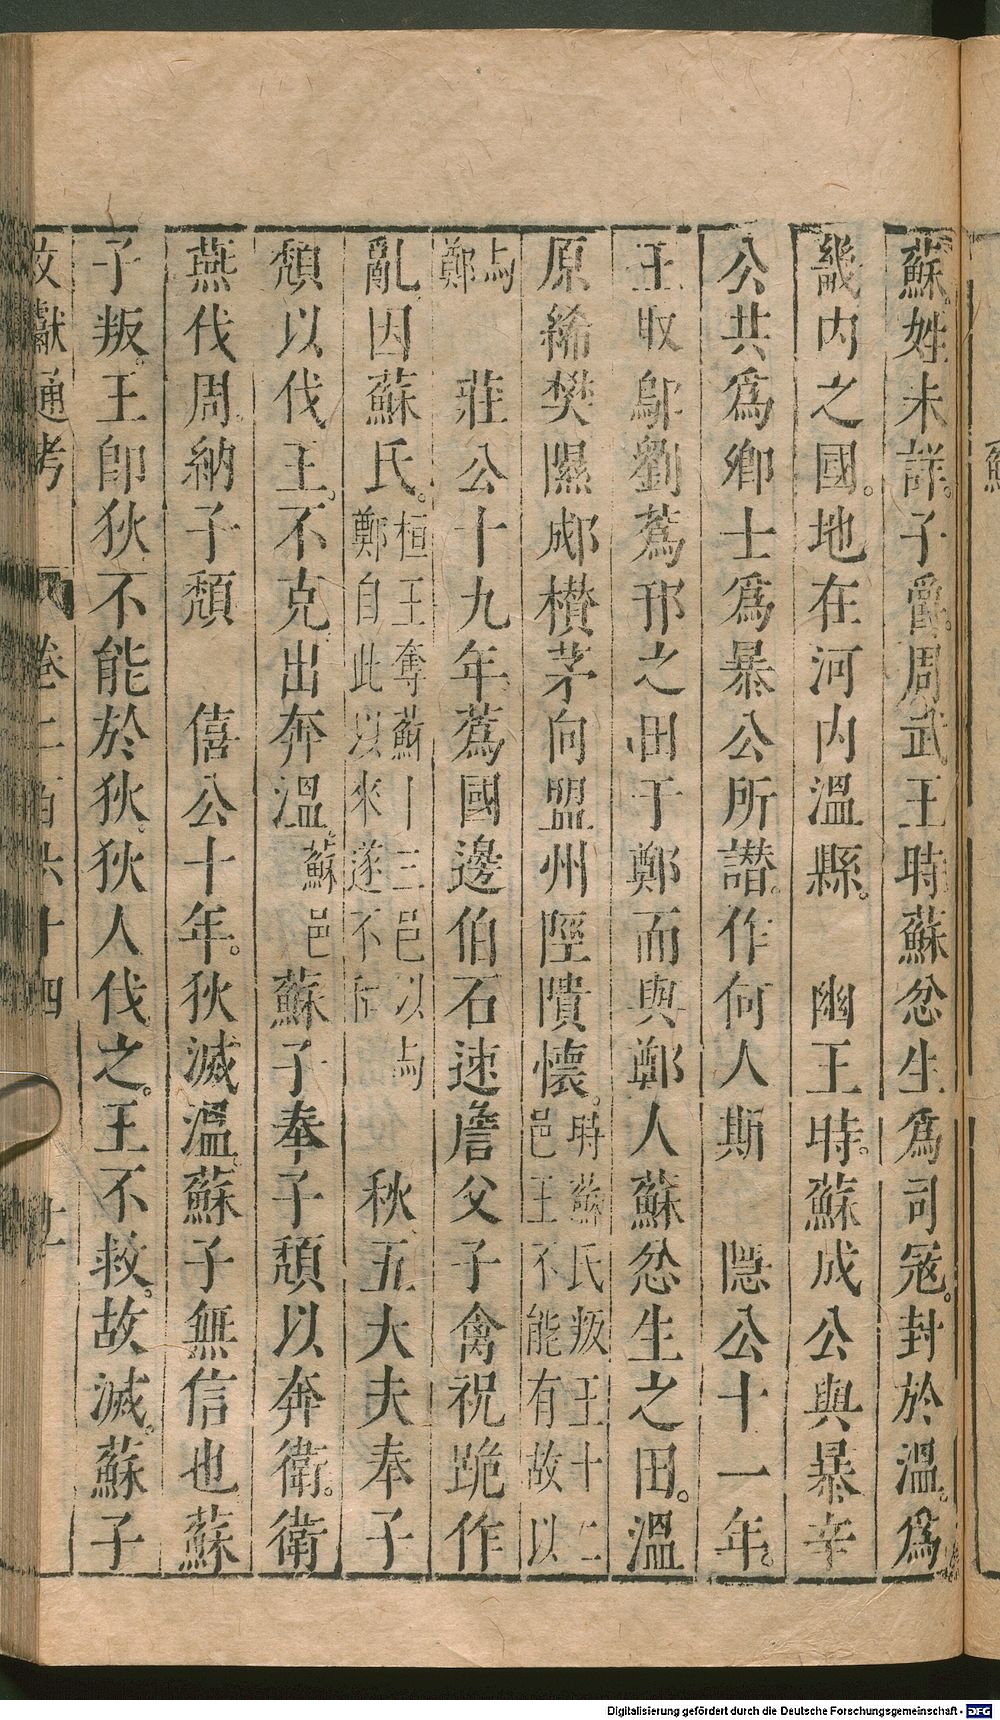 蘇。姓未詳。子爵。周武王時蘇忿生爲司寇。封於溫。爲
畿内之國。地在河内溫縣。　幽王時。蘇成公與暴辛
公共爲卿士爲暴公所譖。作何人斯　隱公十一年。
王取鄔劉蔿邘之田于鄭而與鄭人蘇忿生之田。溫
原絺樊隰郕欑茅向盟州陘隤懷。時蘇氏叛王十二邑王不能有故以
与鄭　莊公十九年。蔿國邊伯石速詹父子禽祝跪作
亂因蘇氏。桓王奪蘇十二邑以与鄭自此以來遂不和　秋五大夫奉子
頹以伐王。不克出奔溫。蘇邑蘇子奉子頹以奔衛。衛
燕伐周。納子頹　僖公十年。狄滅溫。蘇子無信也蘇
子叛。王即狄不能於狄。狄人伐之。王不救。故滅。蘇子
文獻通考　卷二百六十四
Digitalisierung gefördert durch die Deutsche Forschungsgemeinschaft - DFG